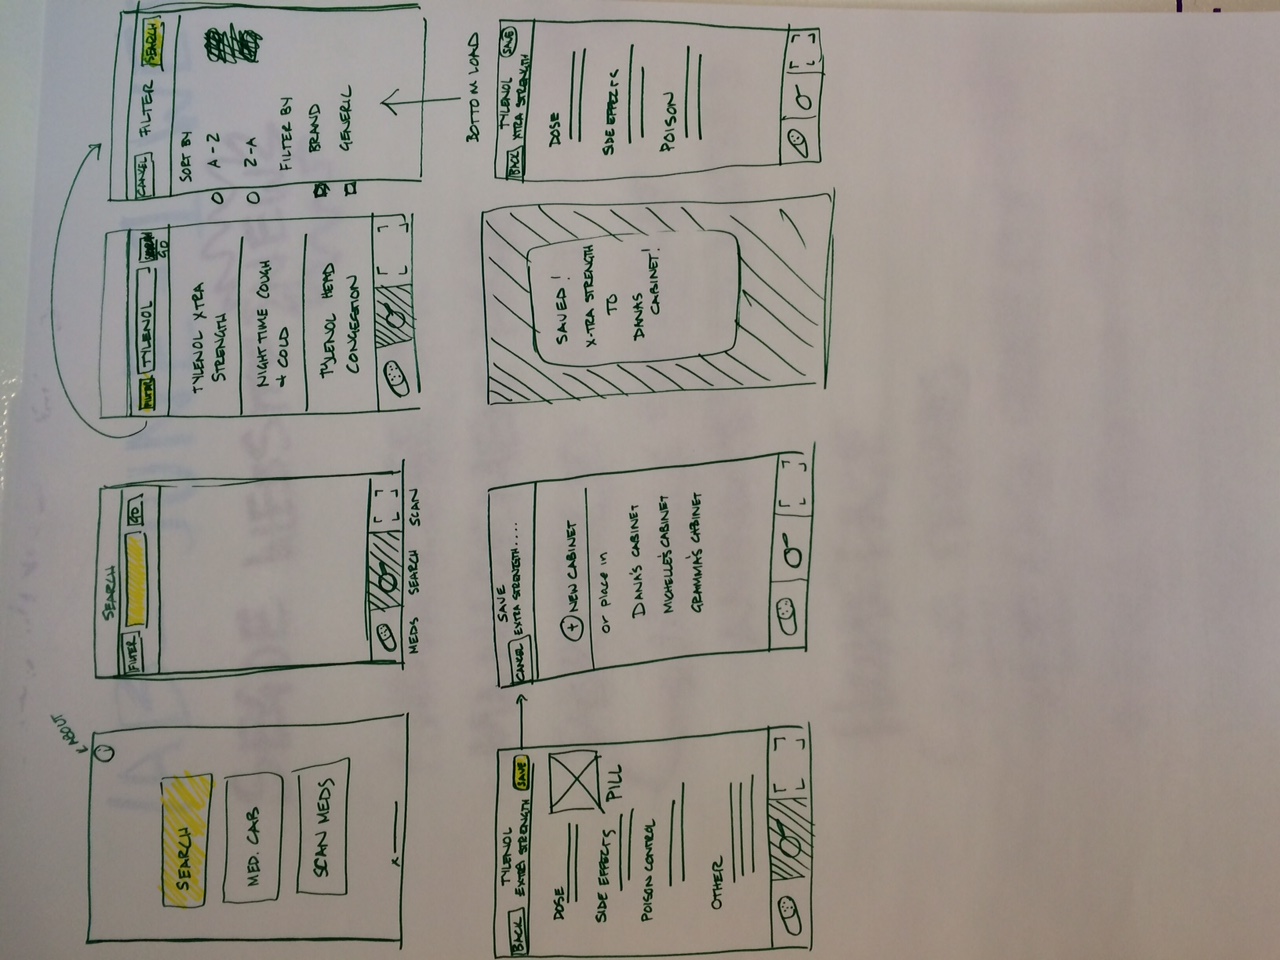 ABOUT
SEARCH
MED. CAB
SCAN MEDS
SEARCH
FILTER
GO
MEDS SEARCH SCAN
FILTER TYLENOL SEARCH
GO
TYLENOL XTRA
STRENGTH
NIGHT TIME COUGH
+ COLD
TYLENOL HEAD
CONGESTION
CANCEL FILTER SEARCH
SORT BY
A-Z
Z-A
FILTER BY
BRAND
GENERIC
BOTTOM LOAD
BACK TYLENOL
EXTRA STRENGTH SAVE
DOSE
SIDE EFFECTS
PILL
POISON CONTROL
OTHER
SAVE
CANCEL EXTRA STRENGTH....
+ NEW CABINET
or place in
DANA'S CABINET
MICHELLE'S CABINET
GRAMMA'S CABINET
SAVED!
X-TRA STRENGTH
TO
DANAS
CABINET!
BACK TYLENOL SAVE
XTRA STRENGTH
DOSE
SIDE EFFECTS
POISON